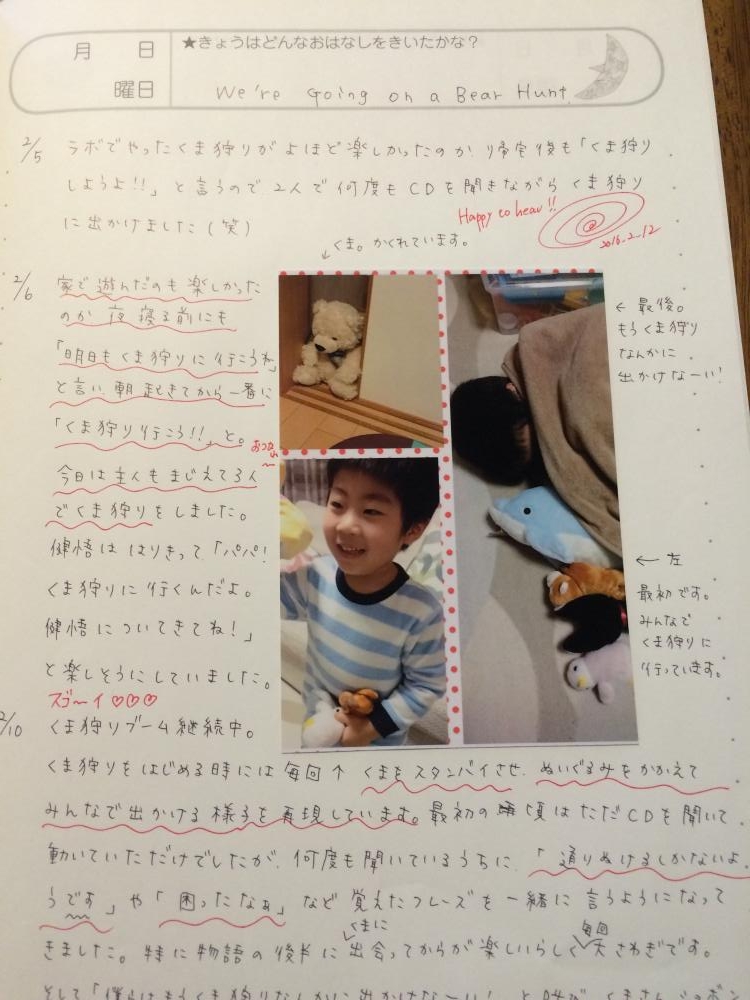 月 日
曜日
★きょうはどんなおはなしをきいたかな?
We're Going on a Bear Hunt.
2/5
ラボでやったくま狩りがよほど楽しかったのか、帰宅後も「くま狩り
しようよ!!」と言うので2人で何度もCDを聞きながらくま狩り
に出かけました(笑)
Happy to hear!!
2016.2.12
くま。かくれています。
2/6
家で遊んだのも楽しかった
のか夜寝る前にも
「明日もくま狩りに行こうね」
と言い、朝起きてから一番に
「くま狩り行こう!!」と。
今日は主人もまじえて3人
でくま狩りをしました。
健悟ははりきって「パパ!
くま狩りに行くんだよ。
健悟についてきてね!」
と楽しそうにしていました。
スゴーイ♡♡♡
← 最後。
もうくま狩り
なんかに
出かけなーい!
← 左
最初です。
みんなで
くま狩りに
行っています。
2/10
くま狩りブーム継続中。
くま狩りをはじめる時には毎回↑くまをスタンバイさせ、ぬいぐるみをかかえて
みんなで出かける様子を再現しています。最初の頃はただCDを聞いて、
動いていただけでしたが、何度も聞いているうちに、「通りぬけるしかないよ
うです」や「困ったなぁ」など覚えたフレーズを一緒に言うようになって
くまに
毎回
きました。特に物語の後半に出会ってからが楽しいらしく大さわぎです。
そして「僕らはもうくま狩りなんかに出かけなーい!」と